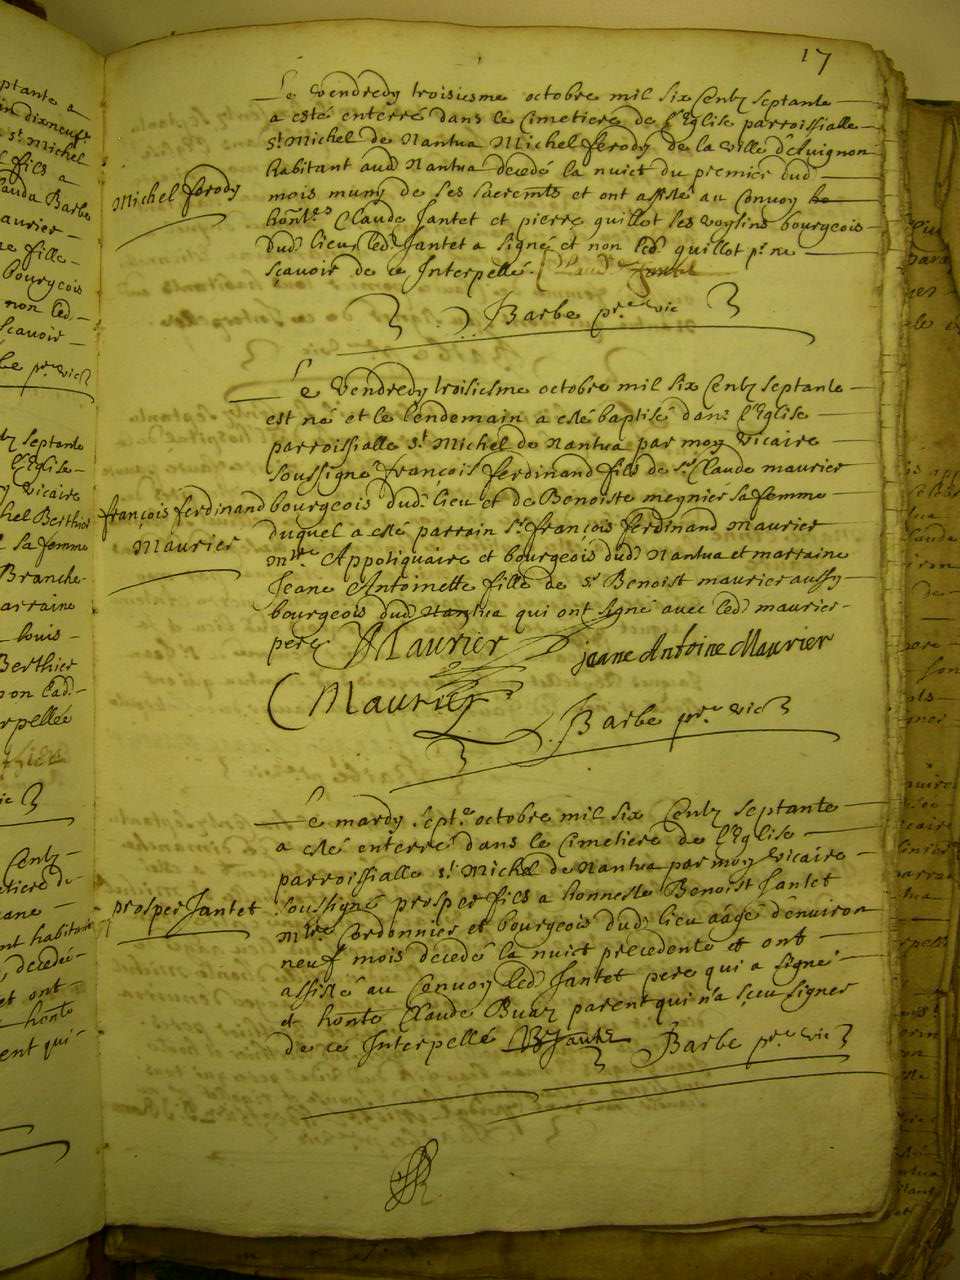 17
Le Vendredy troisiesme octobre mil six Centz septante
a esté enterré dans le Cimetiere de l'Eglise parroissialle
st Michel de Nantua Michel ferody de la ville d'Avignon
habitant aud Nantua decedé la nuict du premier dud
mois muny de ses sacremts et ont assisté au Convoy
Michel ferody
hontes Claude Jantet et pierre quillot les voysins bourgeois
dud lieu led Jantet a signé et non led quillot pr ne
sçavoir de ce Interpellé. Claude Jantet
Barbe pre vic
Le Vendredy troisiesme octobre mil six Centz septante
est né et le lendemain a esté baptisé dans l'Eglise
parroissialle st Michel de Nantua par moy Vicaire
soussigné françois ferdinand fils de sr Claude maurier
françois ferdinand
Maurier
bourgeois dud lieu et de Benoiste megnier sa femme
duquel a esté parrain sr françois ferdinand Maurier
mtre Appotiquaire et bourgeois dud Nantua et marraine
Jeane Antoinette fille de sr Benoist maurier aussy
bourgeois dud Nantua qui ont signé avec led maurier
pere Maurier
jeane Antoine Maurier
C Maurier
Barbe pre vic
Le mardy septe octobre mil six Centz septante
a esté enterré dans le Cimetiere de l'Eglise
parroissialle st Michel de Nantua par moy Vicaire
prosper Jantet
soussigné prosper fils a honneste Benoist Jantet
mtre Cordonnier et bourgeois dud lieu aâgé d'environ
neuf mois decedé la nuict precedente et ont
assisté au Convoy led Jantet pere qui a signé
et honte Claude Buaz parent qui n'a sceu signer
de ce Interpellé B Jantet Barbe pre vic